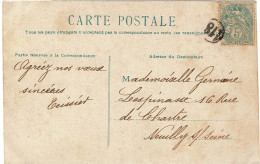 CARTE POSTALE
Tous les pays étrangers n'acceptent pas la correspondance au recto
Partie réservée à la Correspondance
Adresse du Destinataire
Agréez nos vœux
sincères
Mademoiselle Germaine
Lespinasse 16 Rue
de Chartre
Neuilly s/ Seine